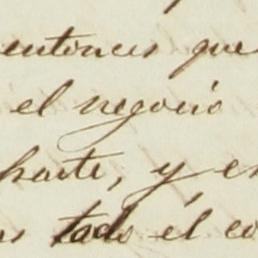 entonces que
el negocio
parte, y en
todo el co